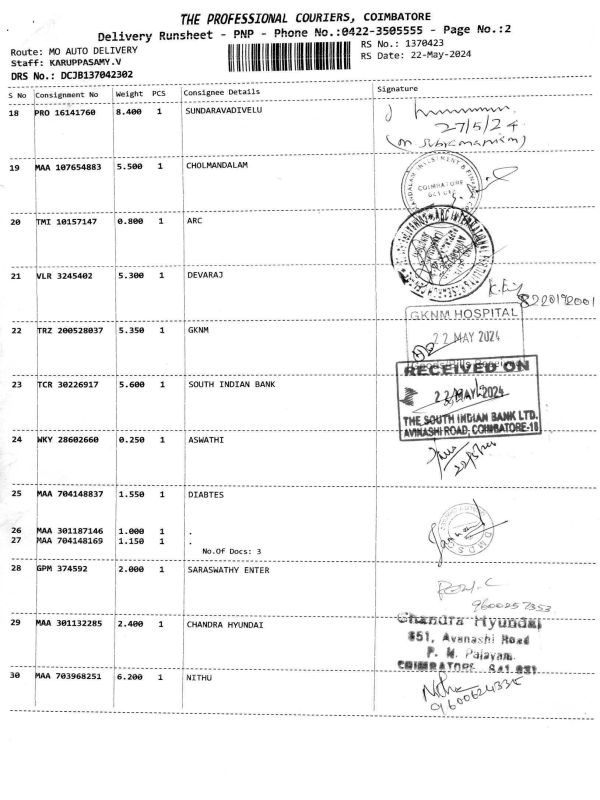 THE PROFESSIONAL COURIERS, COIMBATORE
Delivery Runsheet - PNP - Phone No.:0422-3505555 - Page No.:2
Route: MO AUTO DELIVERY
RS No.: 1370423
Staff: KARUPPASAMY.V
RS Date: 22-May-2024
DRS No.: DCJB137042302
S No Consignment No Weight PCS Consignee Details Signature
18 PRO 16141760 8.400 1 SUNDARAVADIVELU
27/5/24
19 MAA 107654883 5.500 1 CHOLMANDALAM
COIMBATORE
20 TMI 10157147 0.800 1 ARC
21 VLR 3245402 5.300 1 DEVARAJ
GKNM HOSPITAL
22 TRZ 200528037 5.350 1 GKNM
22 MAY 2024
RECEIVED ON
23 TCR 30226917 5.600 1 SOUTH INDIAN BANK
22 MAY 2024
THE SOUTH INDIAN BANK LTD.
AVINASHI ROAD, COIMBATORE-18
24 WKY 28602660 0.250 1 ASWATHI
25 MAA 704148837 1.550 1 DIABTES
26 MAA 301187146 1.000 1 .
27 MAA 704148169 1.150 1 .
No.Of Docs: 3
28 GPM 374592 2.000 1 SARASWATHY ENTER
9600257353
29 MAA 301132285 2.400 1 CHANDRA HYUNDAI
Chandra Hyundai
851, Avanashi Road
P. N. Palayam.
COIMBATORE
30 MAA 703968251 6.200 1 NITHU
Nithu